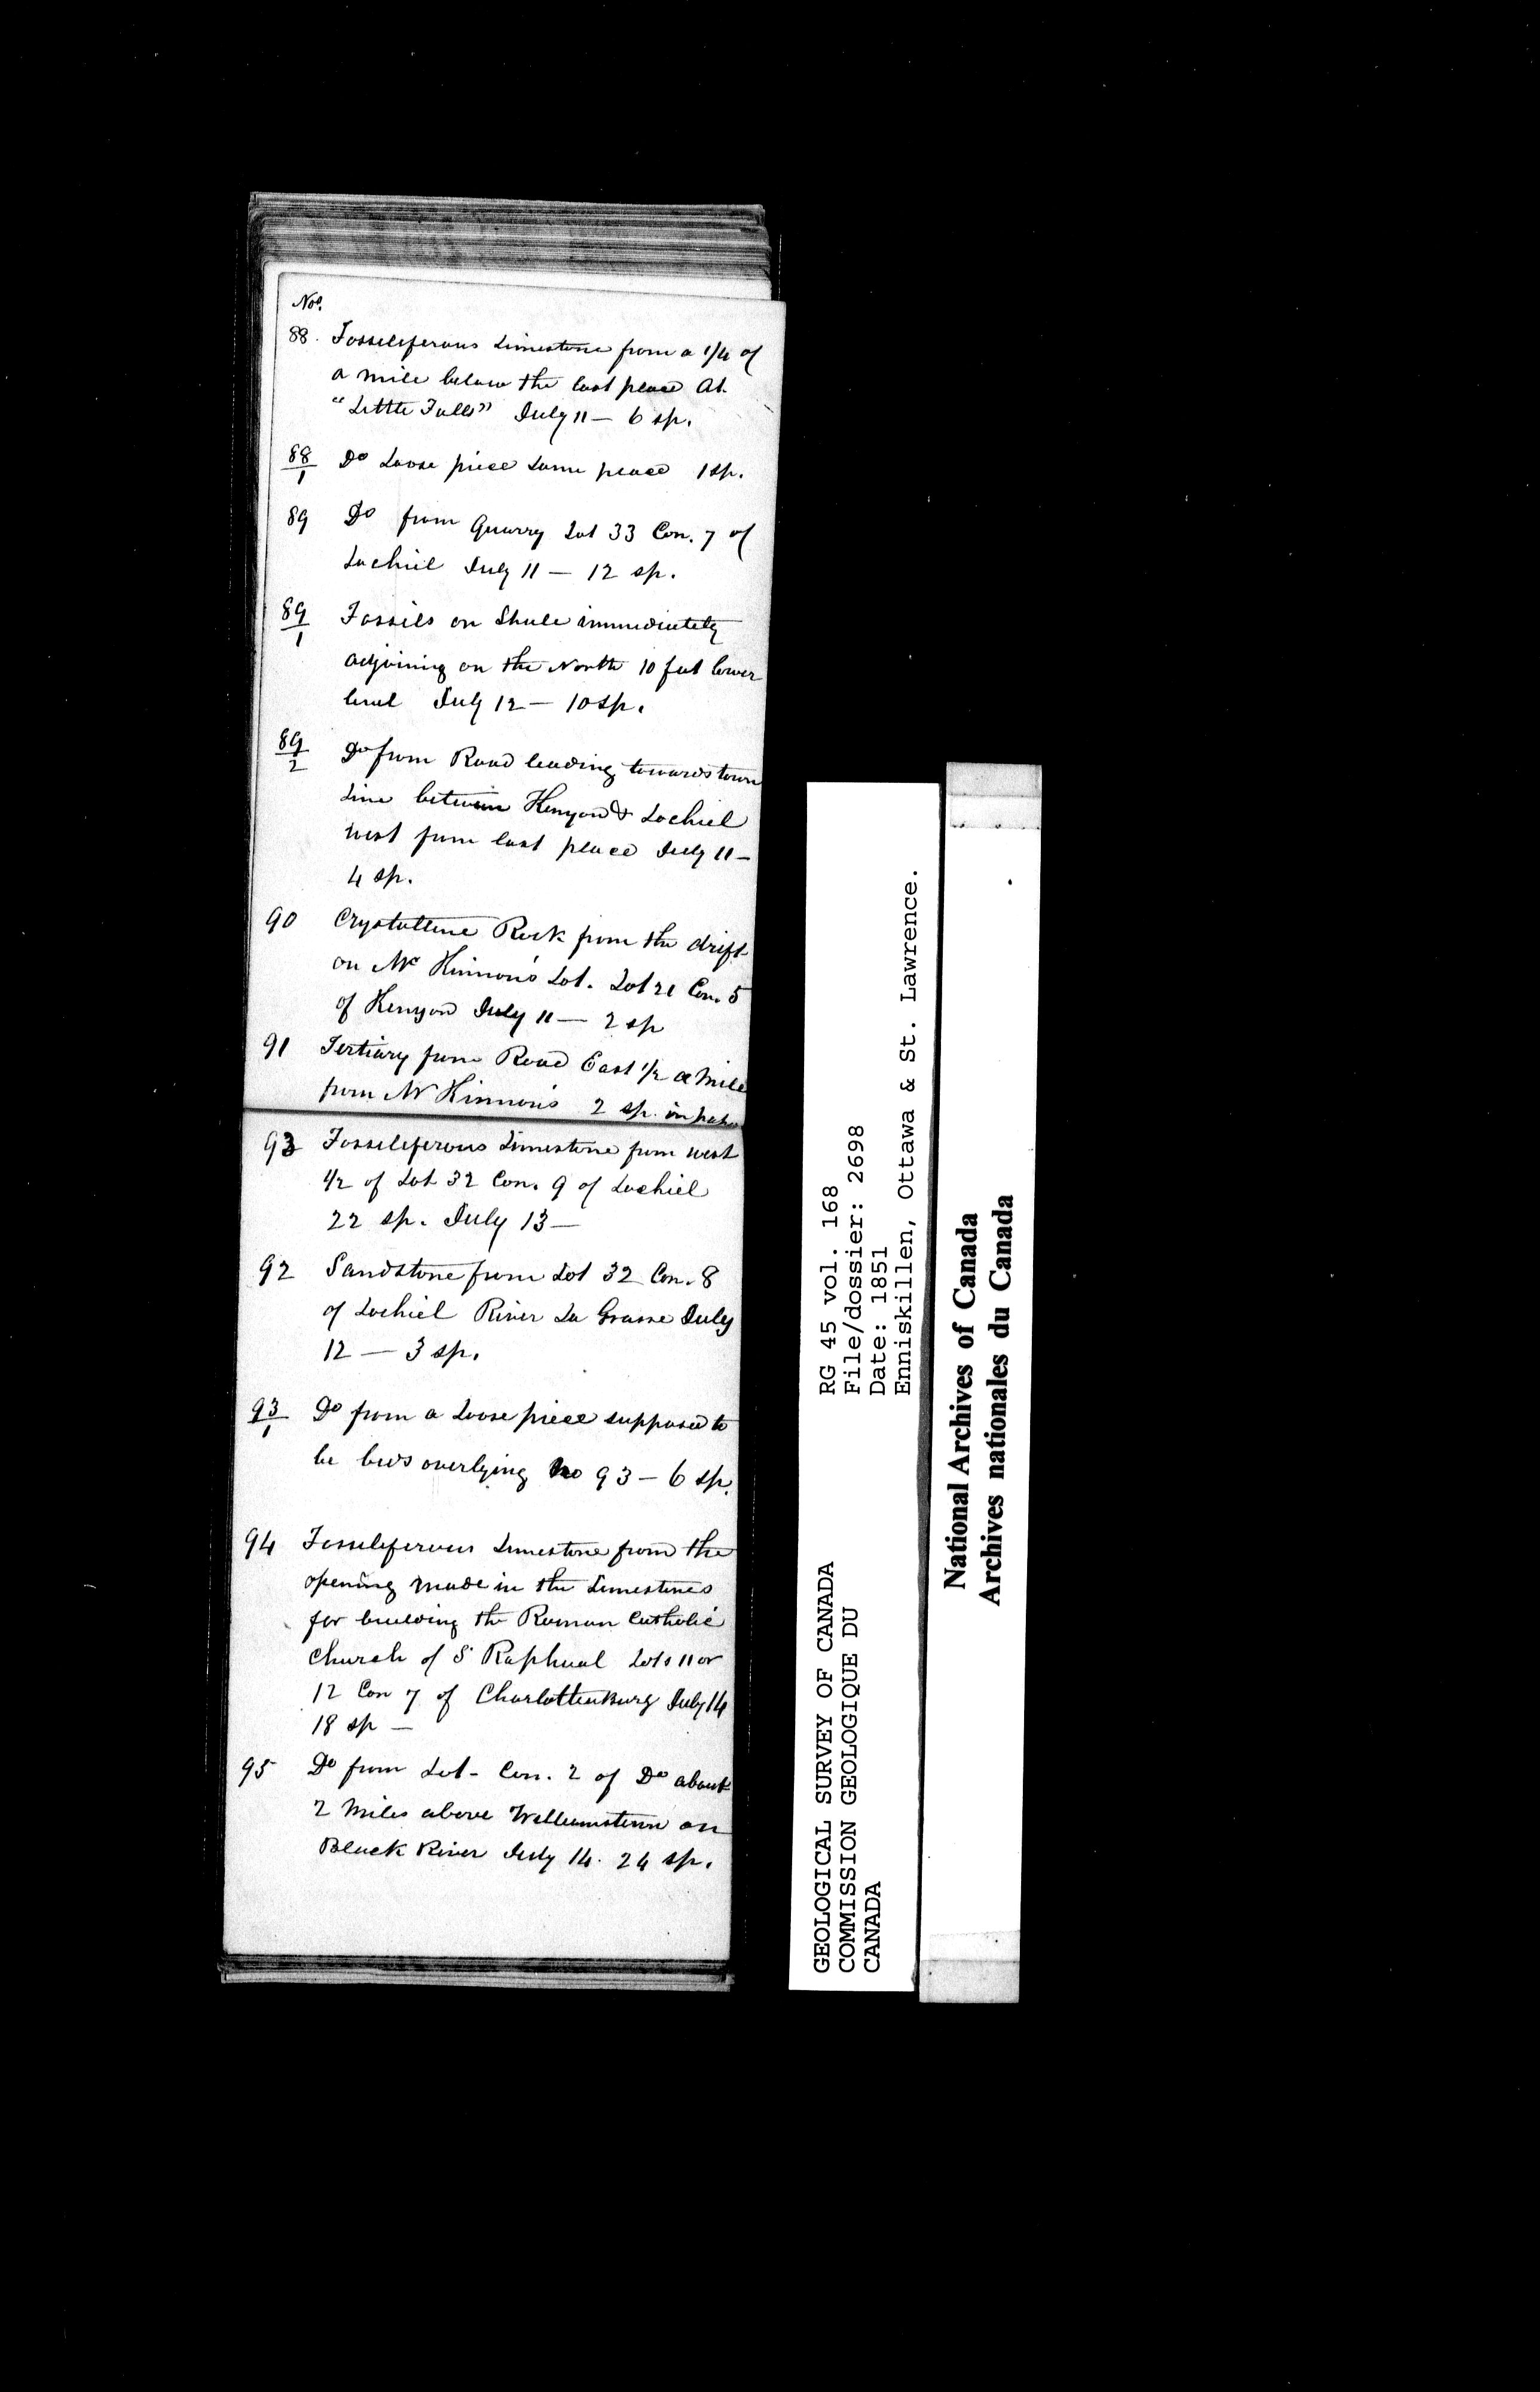 Nos.
88. Fossiliferous Limestone from a 1/4 of
a mile below the last place At
"Little Falls" July 11 — 6 sp.
88/1 Do Loose piece same place 1 sp.
89 Do from Quarry Lot 33 Con. 7 of
Lochiel July 11 — 12 sp.
89/1 Fossils on Shale immediately
adjoining on the North 10 feet lower
level July 12 — 10 sp.
89/2 Do from Road leading towards town
Line between Kenyon & Lochiel
West from last place July 11 —
4 sp.
90 Crystalline Rock from the drift
on Mc Kinnon's Lot. Lot 21 Con. 5
of Kenyon July 11 — 2 sp
91 Tertiary from Road East 1/2 a mile
from Mc Kinnon's 2 sp. in
93 Fossiliferous Limestone from west
1/2 of Lot 32 Con. 9 of Lochiel
22 sp. July 13 —
92 Sandstone from Lot 32 Con. 8
of Lochiel River La Grasse July
12 — 3 sp.
93/1 Do from a Loose piece supposed to
be beds overlying No 93 — 6 sp.
94 Fossiliferous Limestone from the
opening made in the Limestones
for building the Roman Catholic
Church of St Raphael Lots 11 or
12 Con 7 of Charlottenburg July 14
18 sp —
95 Do from Lot - Con. 2 of Do about
2 miles above Williamstown on
Black River July 14. 24 sp.
GEOLOGICAL SURVEY OF CANADA
COMMISSION GEOLOGIQUE DU
CANADA
RG 45 vol. 168
File/dossier: 2698
Date: 1851
Enniskillen, Ottawa & St. Lawrence.
National Archives of Canada
Archives nationales du Canada